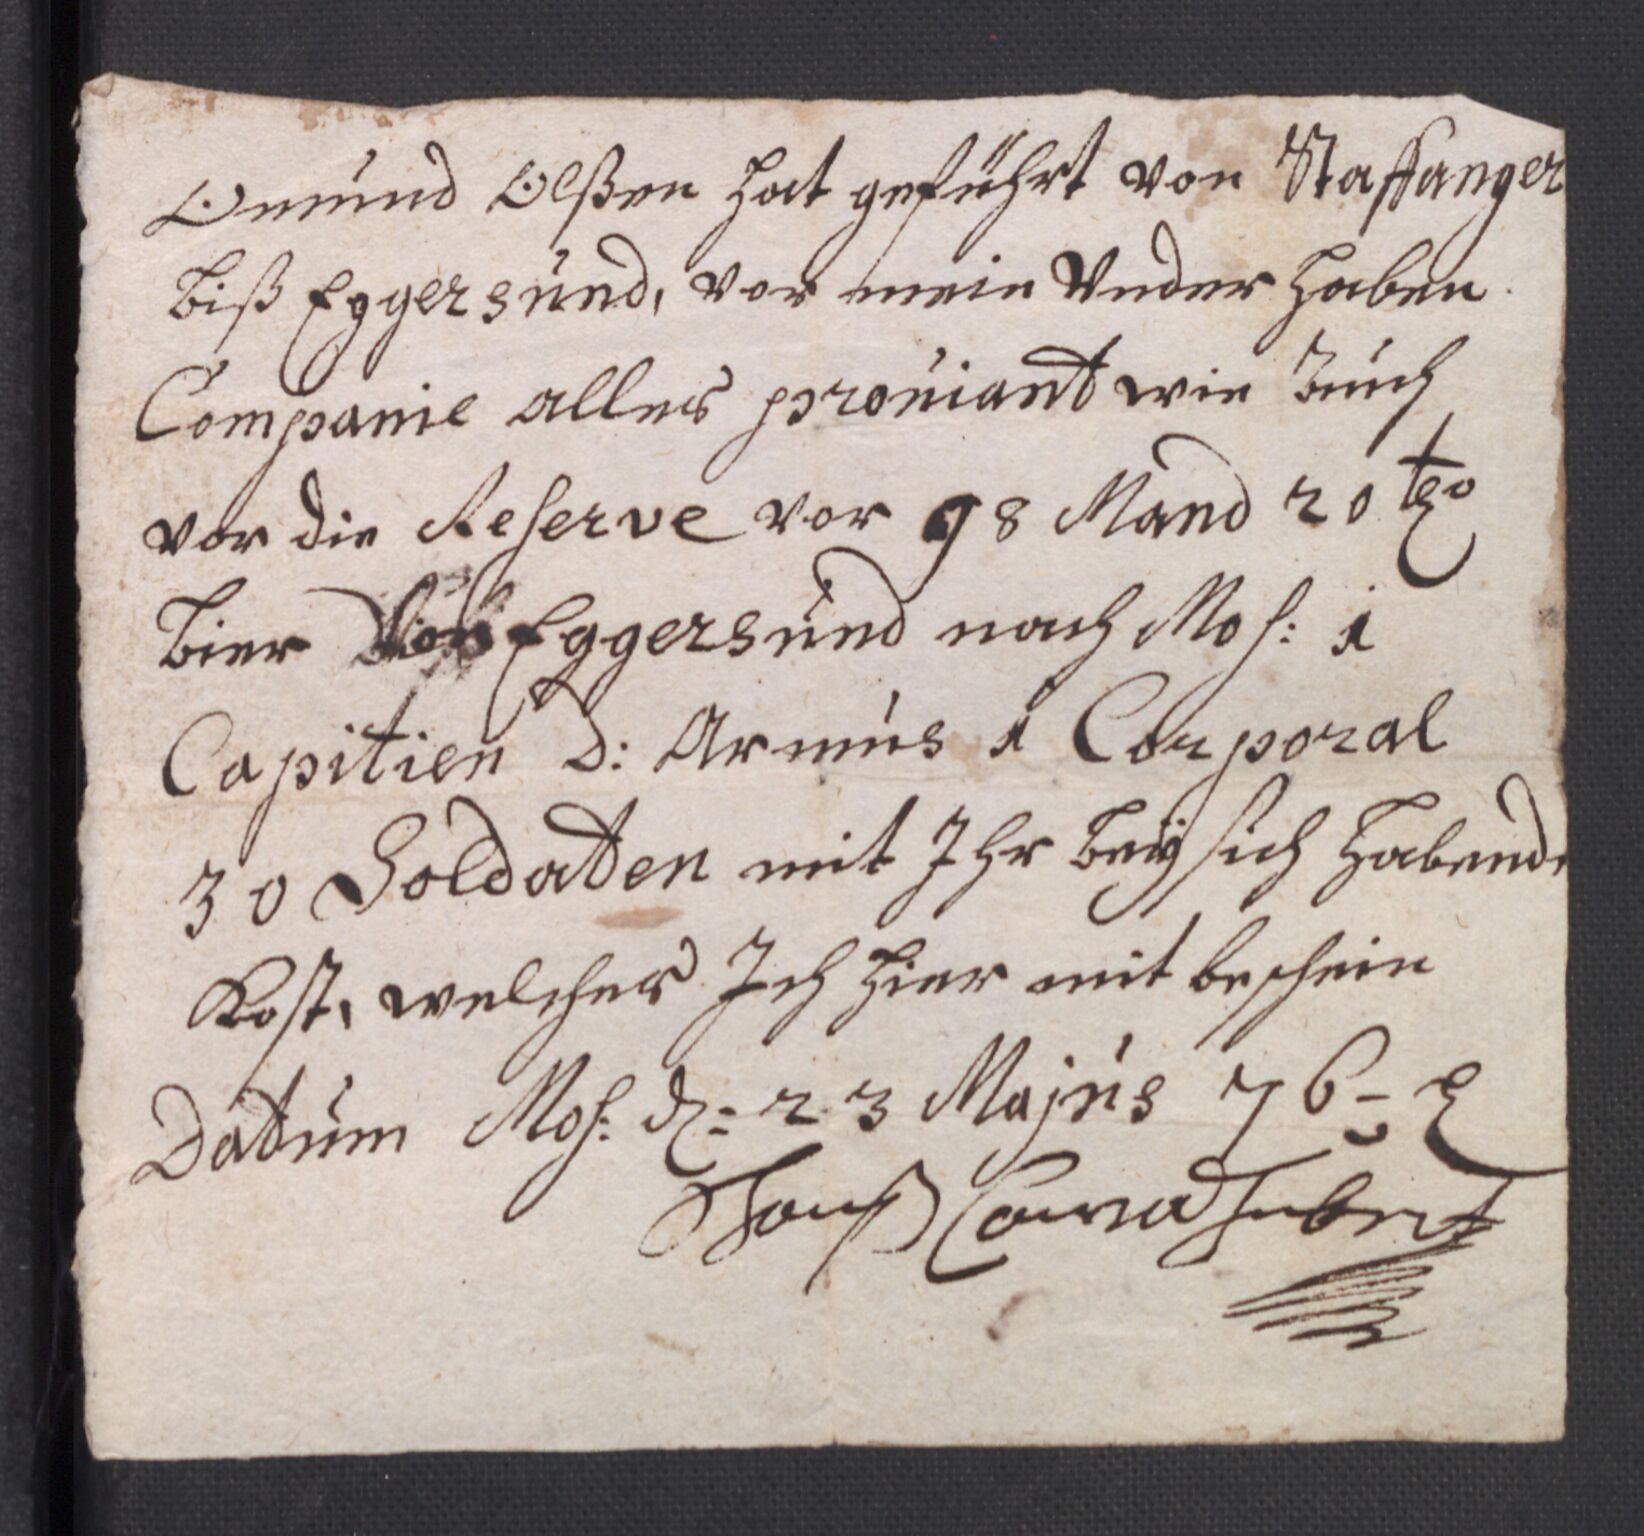 Omund Olßen hat geführt von Staffanger
biß Eggersund, vor mein Vnder haben
Companie alles proviant wie Auch
vor die Reserve vor 98 Mand 20 
bier Von Eggersund nach Moss: 1
Capitien D: Armus 1 Corporal
30 Soldaten mit Ihr beÿ sich habende
Kost, welches Ich hier mit beschein
Datum Moss: d: 23 Majus 76
Hanß Conrad